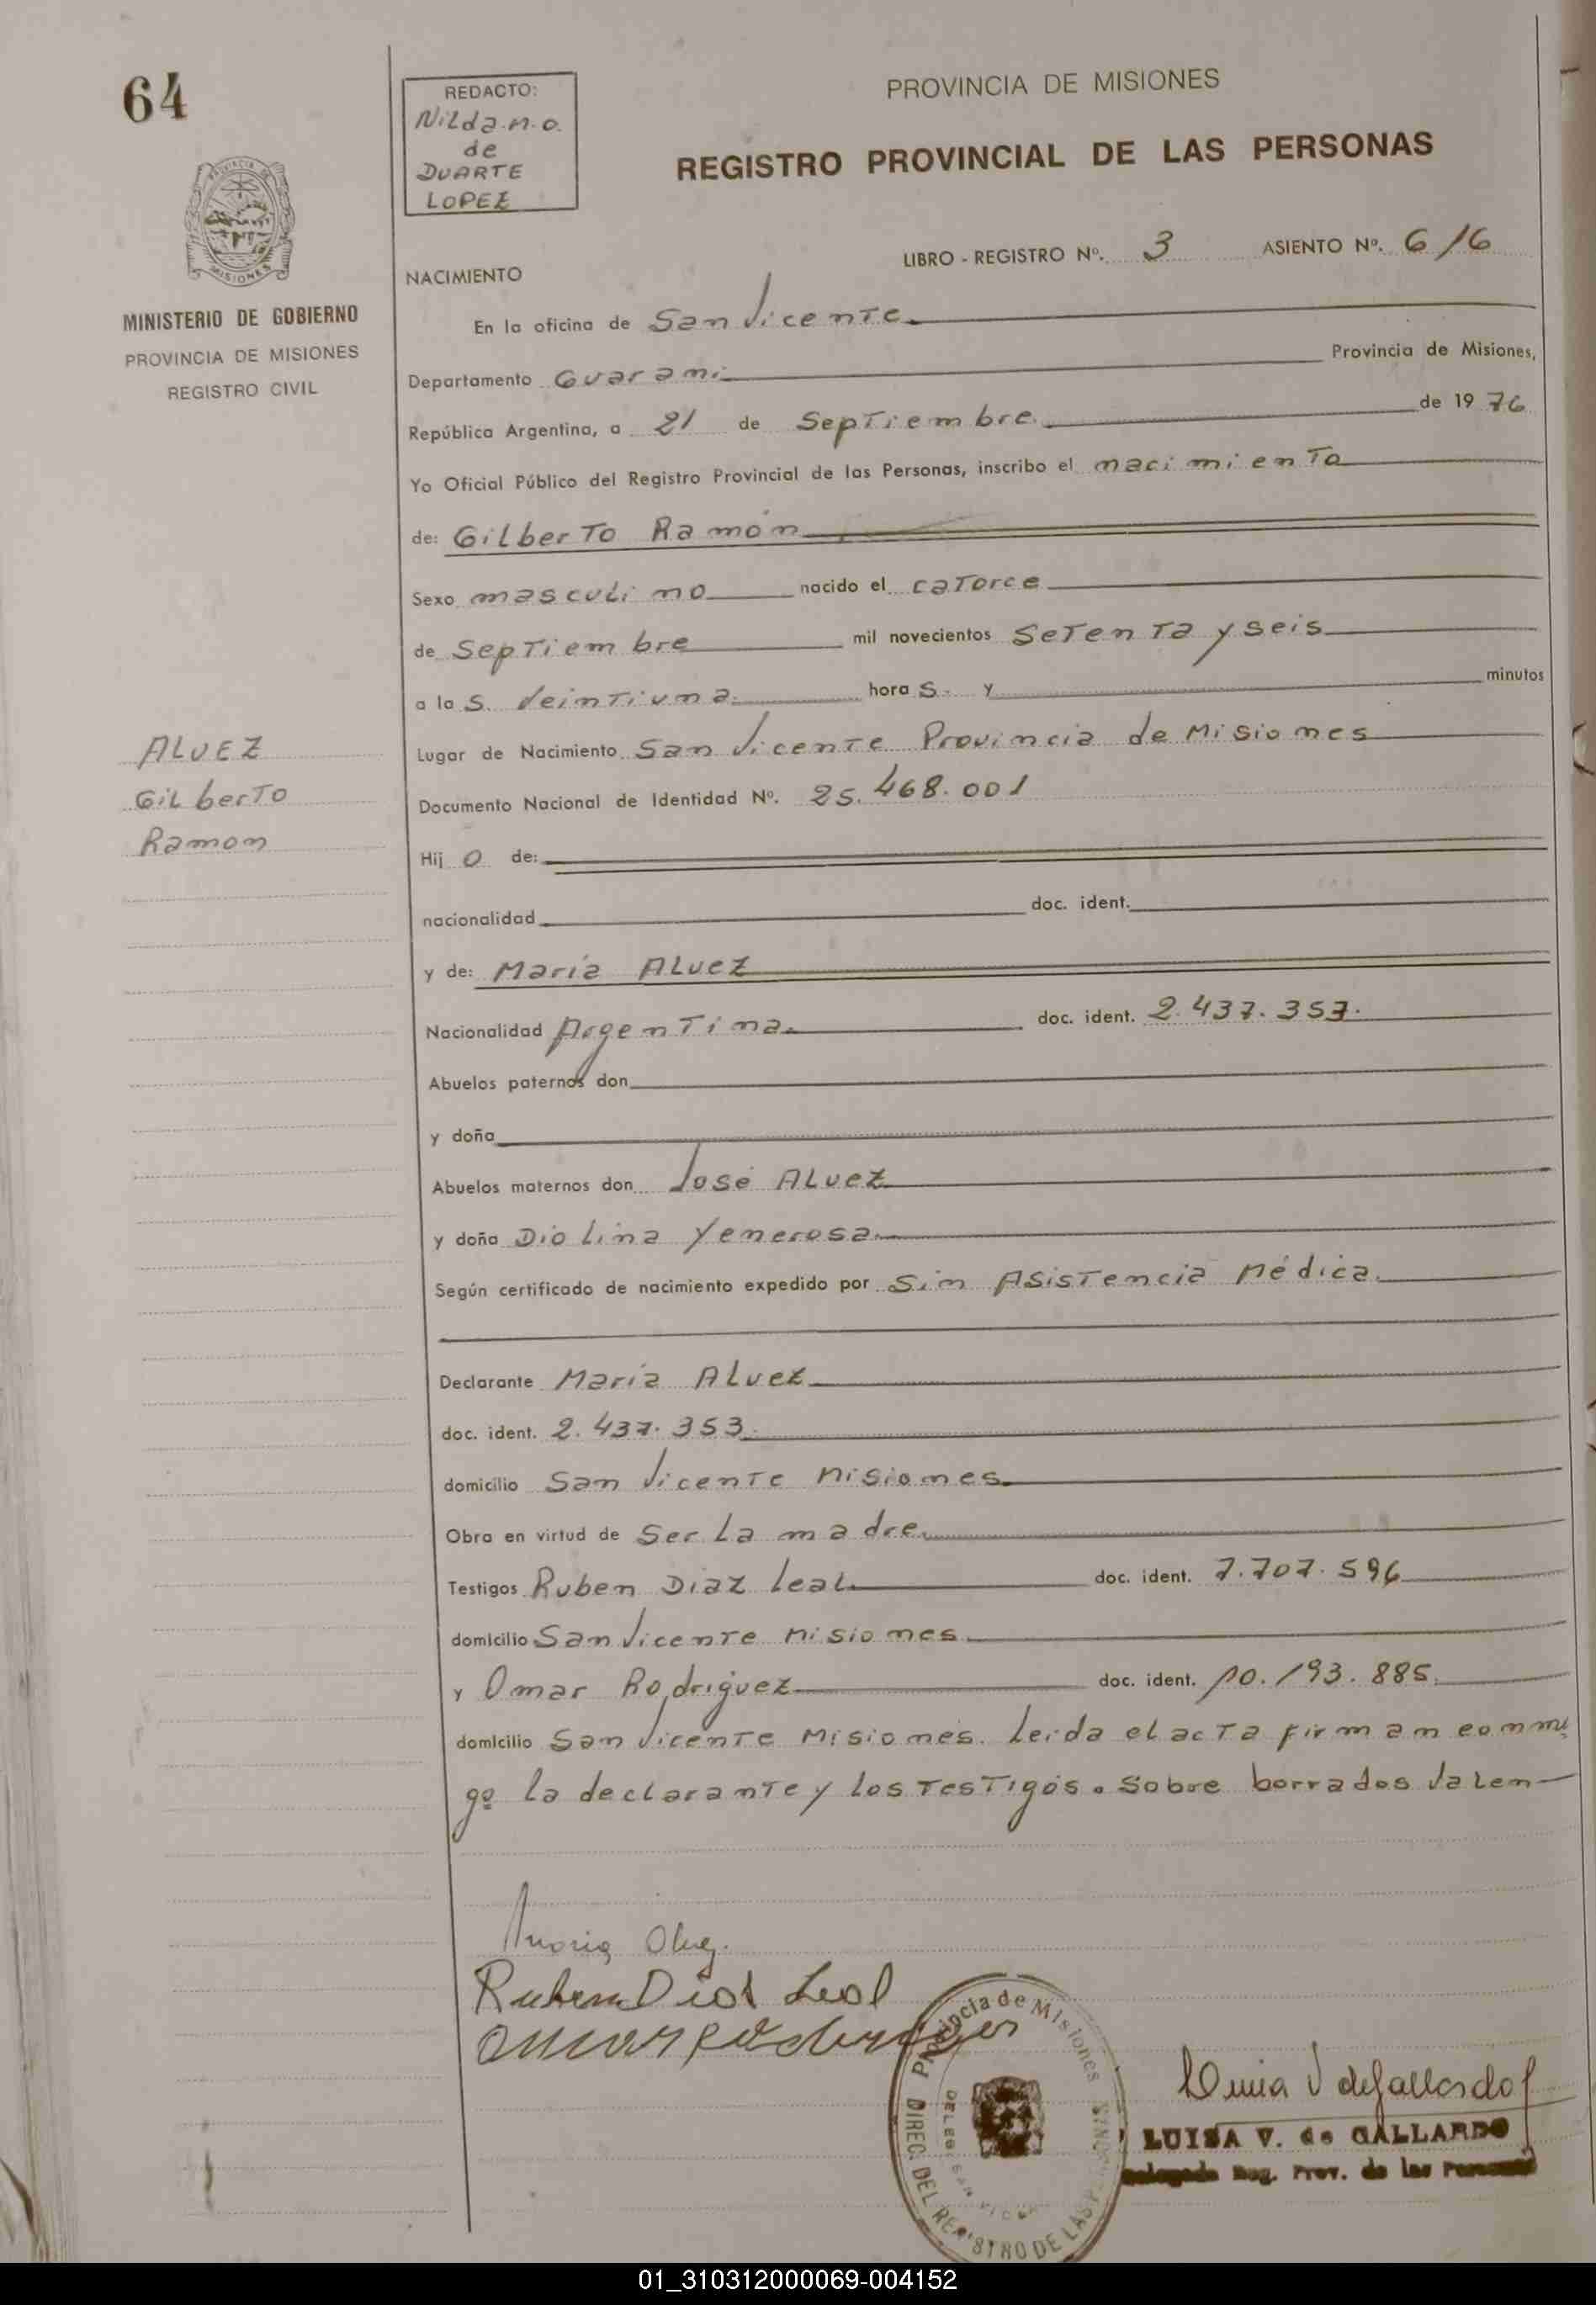 64
REDACTO:
Nilda.n.o.
de
DUARTE
LOPEZ
PROVINCIA DE MISIONES
REGISTRO PROVINCIAL DE LAS PERSONAS
LIBRO - REGISTRO Nº. 3 ASIENTO Nº. 616
NACIMIENTO
MINISTERIO DE GOBIERNO
PROVINCIA DE MISIONES
REGISTRO CIVIL
En la oficina de San Vicente
Departamento Guarani Provincia de Misiones,
República Argentina, a 21 de Septiembre de 1976
Yo Oficial Público del Registro Provincial de las Personas, inscribo el nacimiento
de: Gilberto Ramón
Sexo masculino nacido el catorce
de Septiembre mil novecientos Setenta y seis
a las veintiuna horas y minutos
Lugar de Nacimiento San Vicente Provincia de Misiones
ALVEZ
Gilberto
Ramon
Documento Nacional de Identidad Nº. 25.468.001
Hijo de:
nacionalidad doc. ident.
y de: María Alvez
Nacionalidad Argentina doc. ident. 2.437.353.
Abuelos paternos don
y doña
Abuelos maternos don José Alvez
y doña Diolina Yenerosa
Según certificado de nacimiento expedido por Sin Asistencia Médica
Declarante María Alvez
doc. ident. 2.437.353
domicilio San Vicente Misiones
Obra en virtud de Ser la madre
Testigos Ruben Diaz Leal doc. ident. 7.707.596
domicilio San Vicente Misiones
y Omar Rodriguez doc. ident. 10.193.885
domicilio San Vicente Misiones. Leida el acta firman conmi
go la declarante y los testigos. Sobre borrados Valen
Ruben Dias Leal
Provincia de Misiones
DIREC. DEL REGISTRO DE LAS
Luisa V de Gallardo
LUISA V. de GALLARDO
Delegada Reg. Prov. de las Personas
01_310312000069-004152